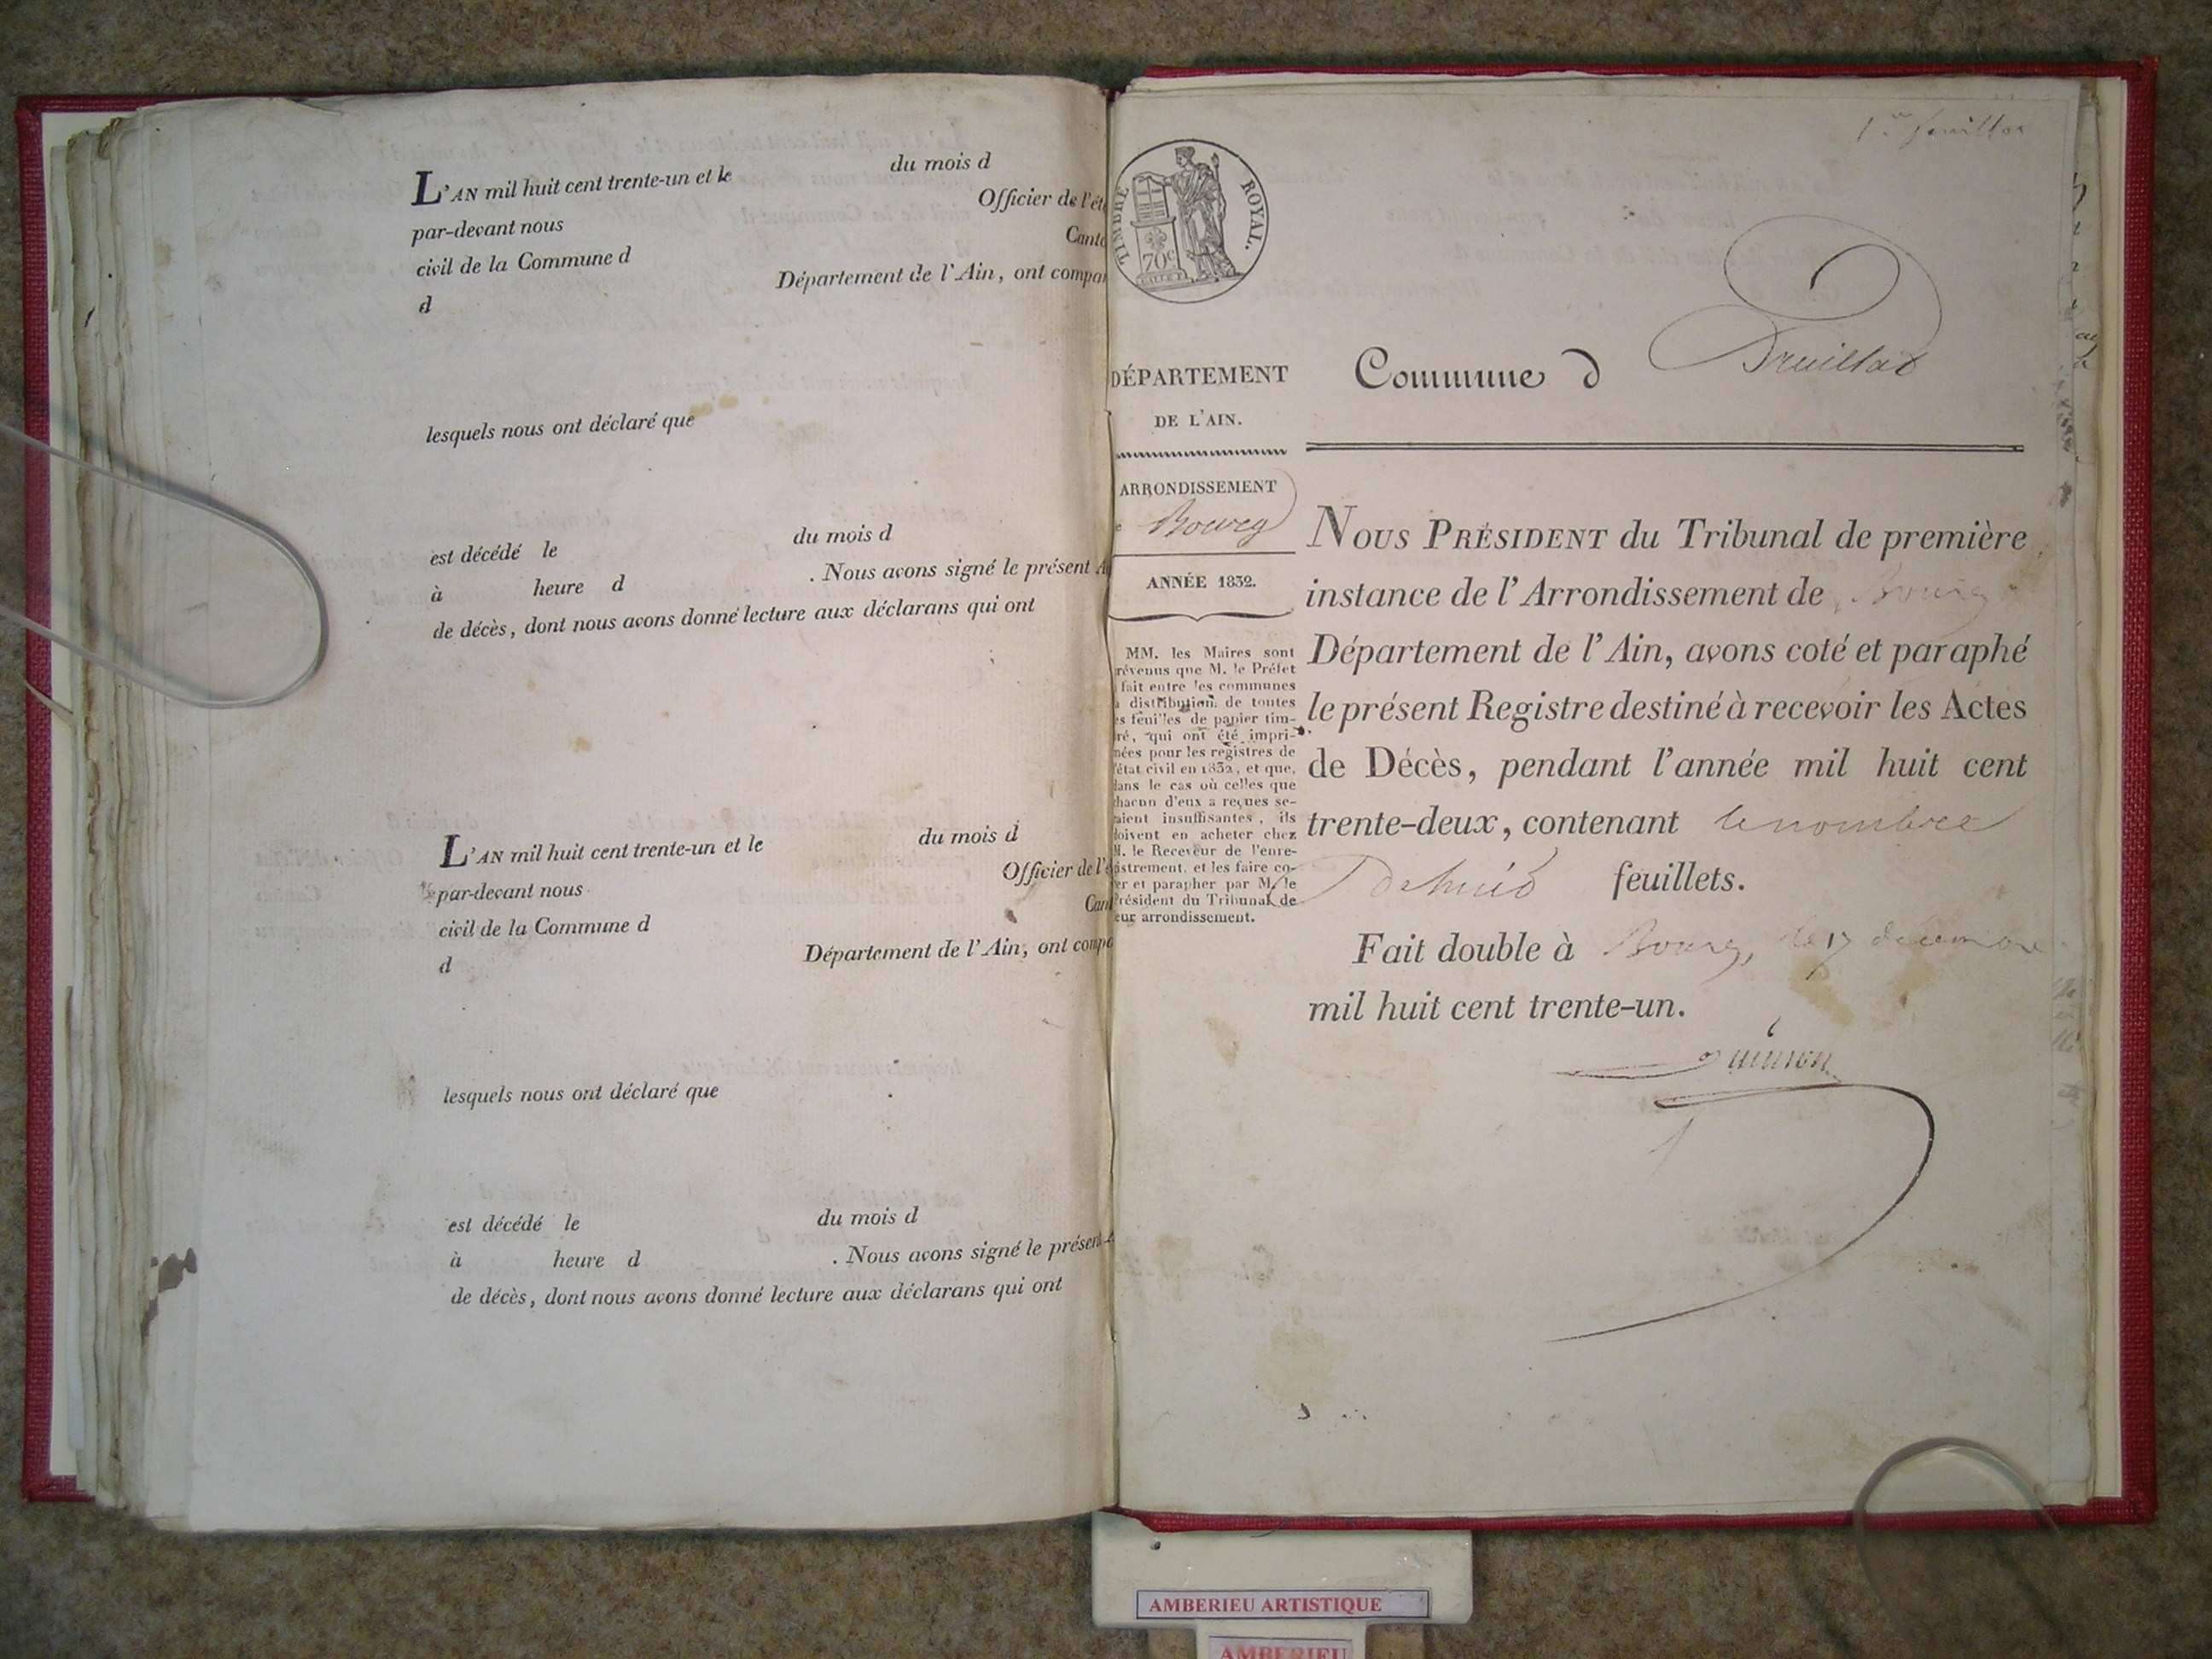 L'AN mil huit cent trente-un et le du mois d
par-devant nous Officier de l'ét
civil de la Commune d Canto
d Département de l'Ain, ont compar
lesquels nous ont déclaré que
est décédé le du mois d
à heure d . Nous avons signé le présent A
de décès, dont nous avons donné lecture aux déclarans qui ont
L'AN mil huit cent trente-un et le du mois d
par-devant nous Officier de l'é
civil de la Commune d Can
d Département de l'Ain, ont compa
lesquels nous ont déclaré que
est décédé le du mois d
à heure d . Nous avons signé le présent A
de décès, dont nous avons donné lecture aux déclarans qui ont
1er feuillet
TIMBRE ROYAL.
70c
DÉPARTEMENT
DE L'AIN.
ARRONDISSEMENT
e Bourg
ANNÉE 1832.
MM. les Maires sont
révenus que M. le Préfet
fait entre les communes
a distribution de toutes
es feuilles de papier tim-
ré, qui ont été impri-
mées pour les registres de
l'état civil en 1832, et que,
dans le cas où celles que
chacun d'eux a reçues se-
aient insuffisantes, ils
doivent en acheter chez
M. le Receveur de l'enre-
gistrement, et les faire co-
er et parapher par M. le
Président du Tribunal de
eur arrondissement.
Commune d Druillat
NOUS PRÉSIDENT du Tribunal de première
instance de l'Arrondissement de Bourg
Département de l'Ain, avons coté et paraphé
le présent Registre destiné à recevoir les Actes
de Décès, pendant l'année mil huit cent
trente-deux, contenant le nombre
de huit feuillets.
Fait double à Bourg, le 17 décembre
mil huit cent trente-un.
AMBERIEU ARTISTIQUE
AMBERIEU